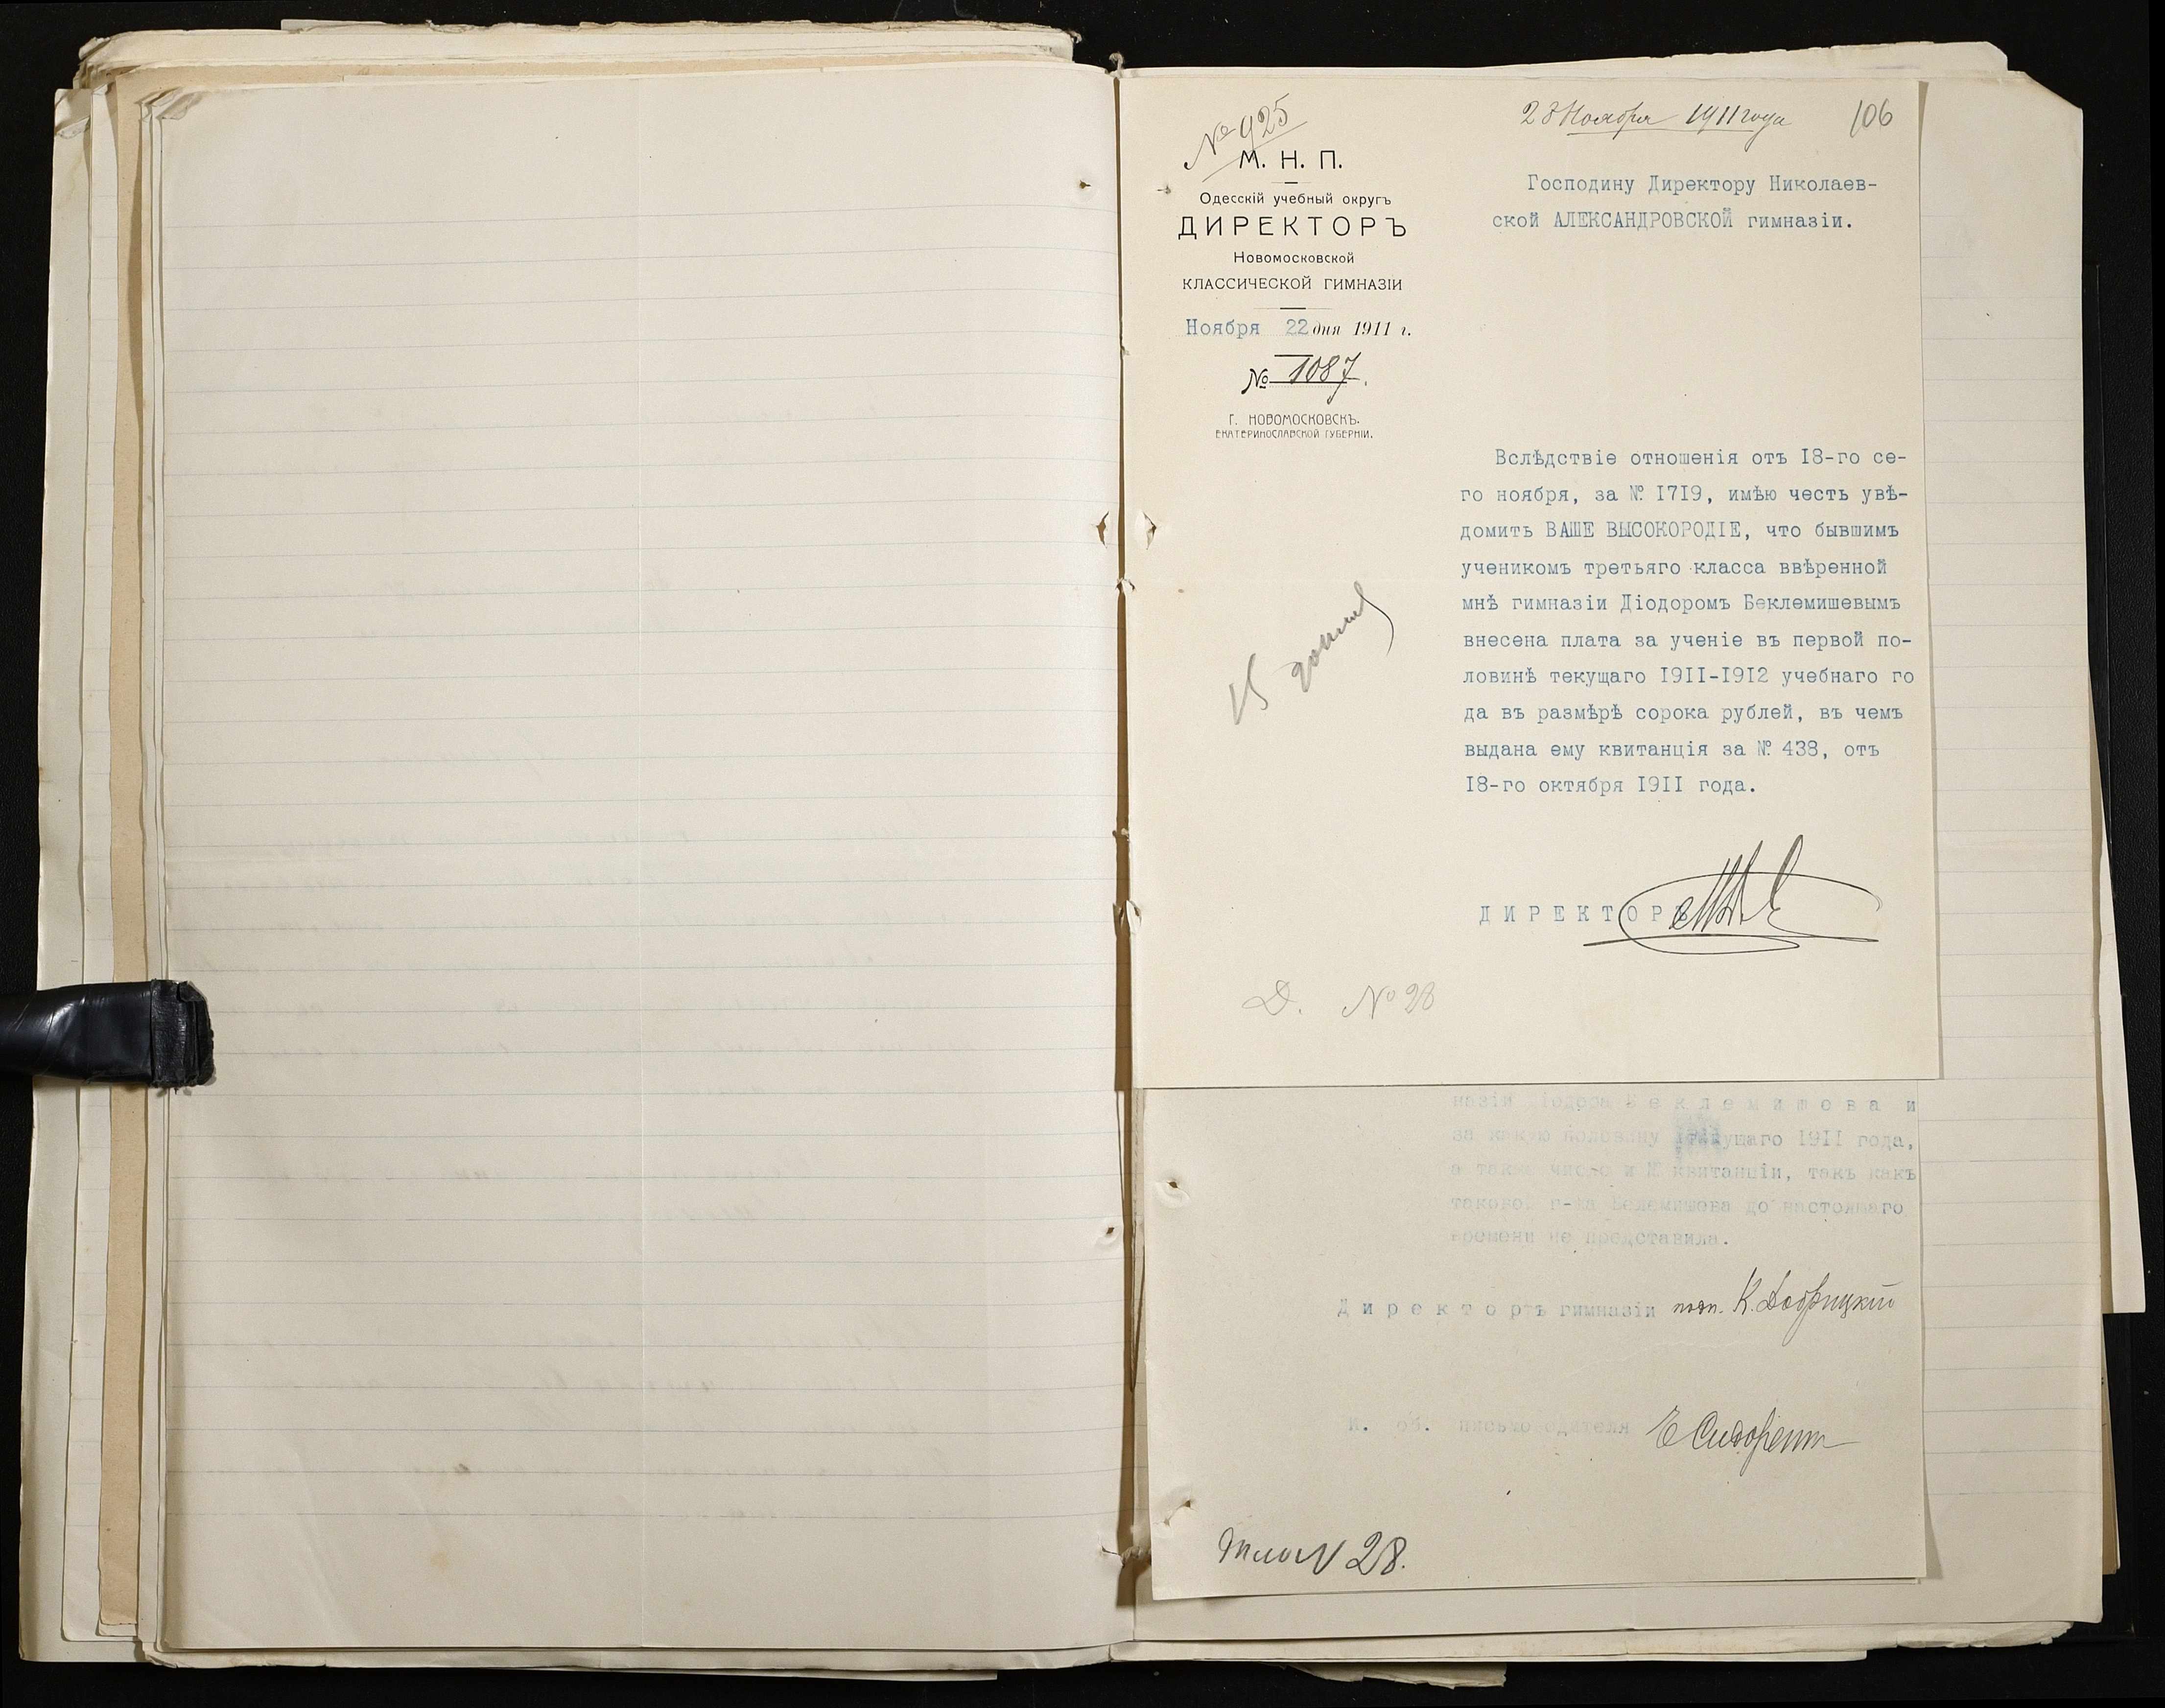 № 925
28 Ноября 1911 года
106
М. Н. П.
Одесскій учебный округъ
ДИРЕКТОРЪ
Новомосковской
КЛАССИЧЕСКОЙ ГИМНАЗІИ
Ноября 22 дня 1911 г.
№ 1087.
Г. НОВОМОСКОВСКЪ.
ЕКАТЕРИНОСЛАВСКОЙ ГУБЕРНІИ.
Господину Директору Николаев-
ской АЛЕКСАНДРОВСКОЙ гимназіи.
Вслѣдствіе отношенія отъ I8-го се-
го ноября, за № I7I9, имѣю честь увѣ-
домить ВАШЕ ВЫСОКОРОДІЕ, что бывшимъ
ученикомъ третьяго класса ввѣренной
мнѣ гимназіи Діодоромъ Беклемишевымъ
внесена плата за ученіе въ первой по-
ловинѣ текущаго I9II-I9I2 учебнаго го
да въ размѣрѣ сорока рублей, въ чемъ
выдана ему квитанція за № 438, отъ
I8-го октября I9II года.
ДИРЕКТОРЪ
Д. № 28
назіи Діодора Беклемишова и
за какую половину текущаго I9II года,
а также число и № квитанціи, такъ какъ
таковой г-жа Беклемишева до настоящаго
времени не представила.
Директоръ гимназіи подп. К. Добрицкій
И. об. письмоводителя Е Сидоренко
№ 28.